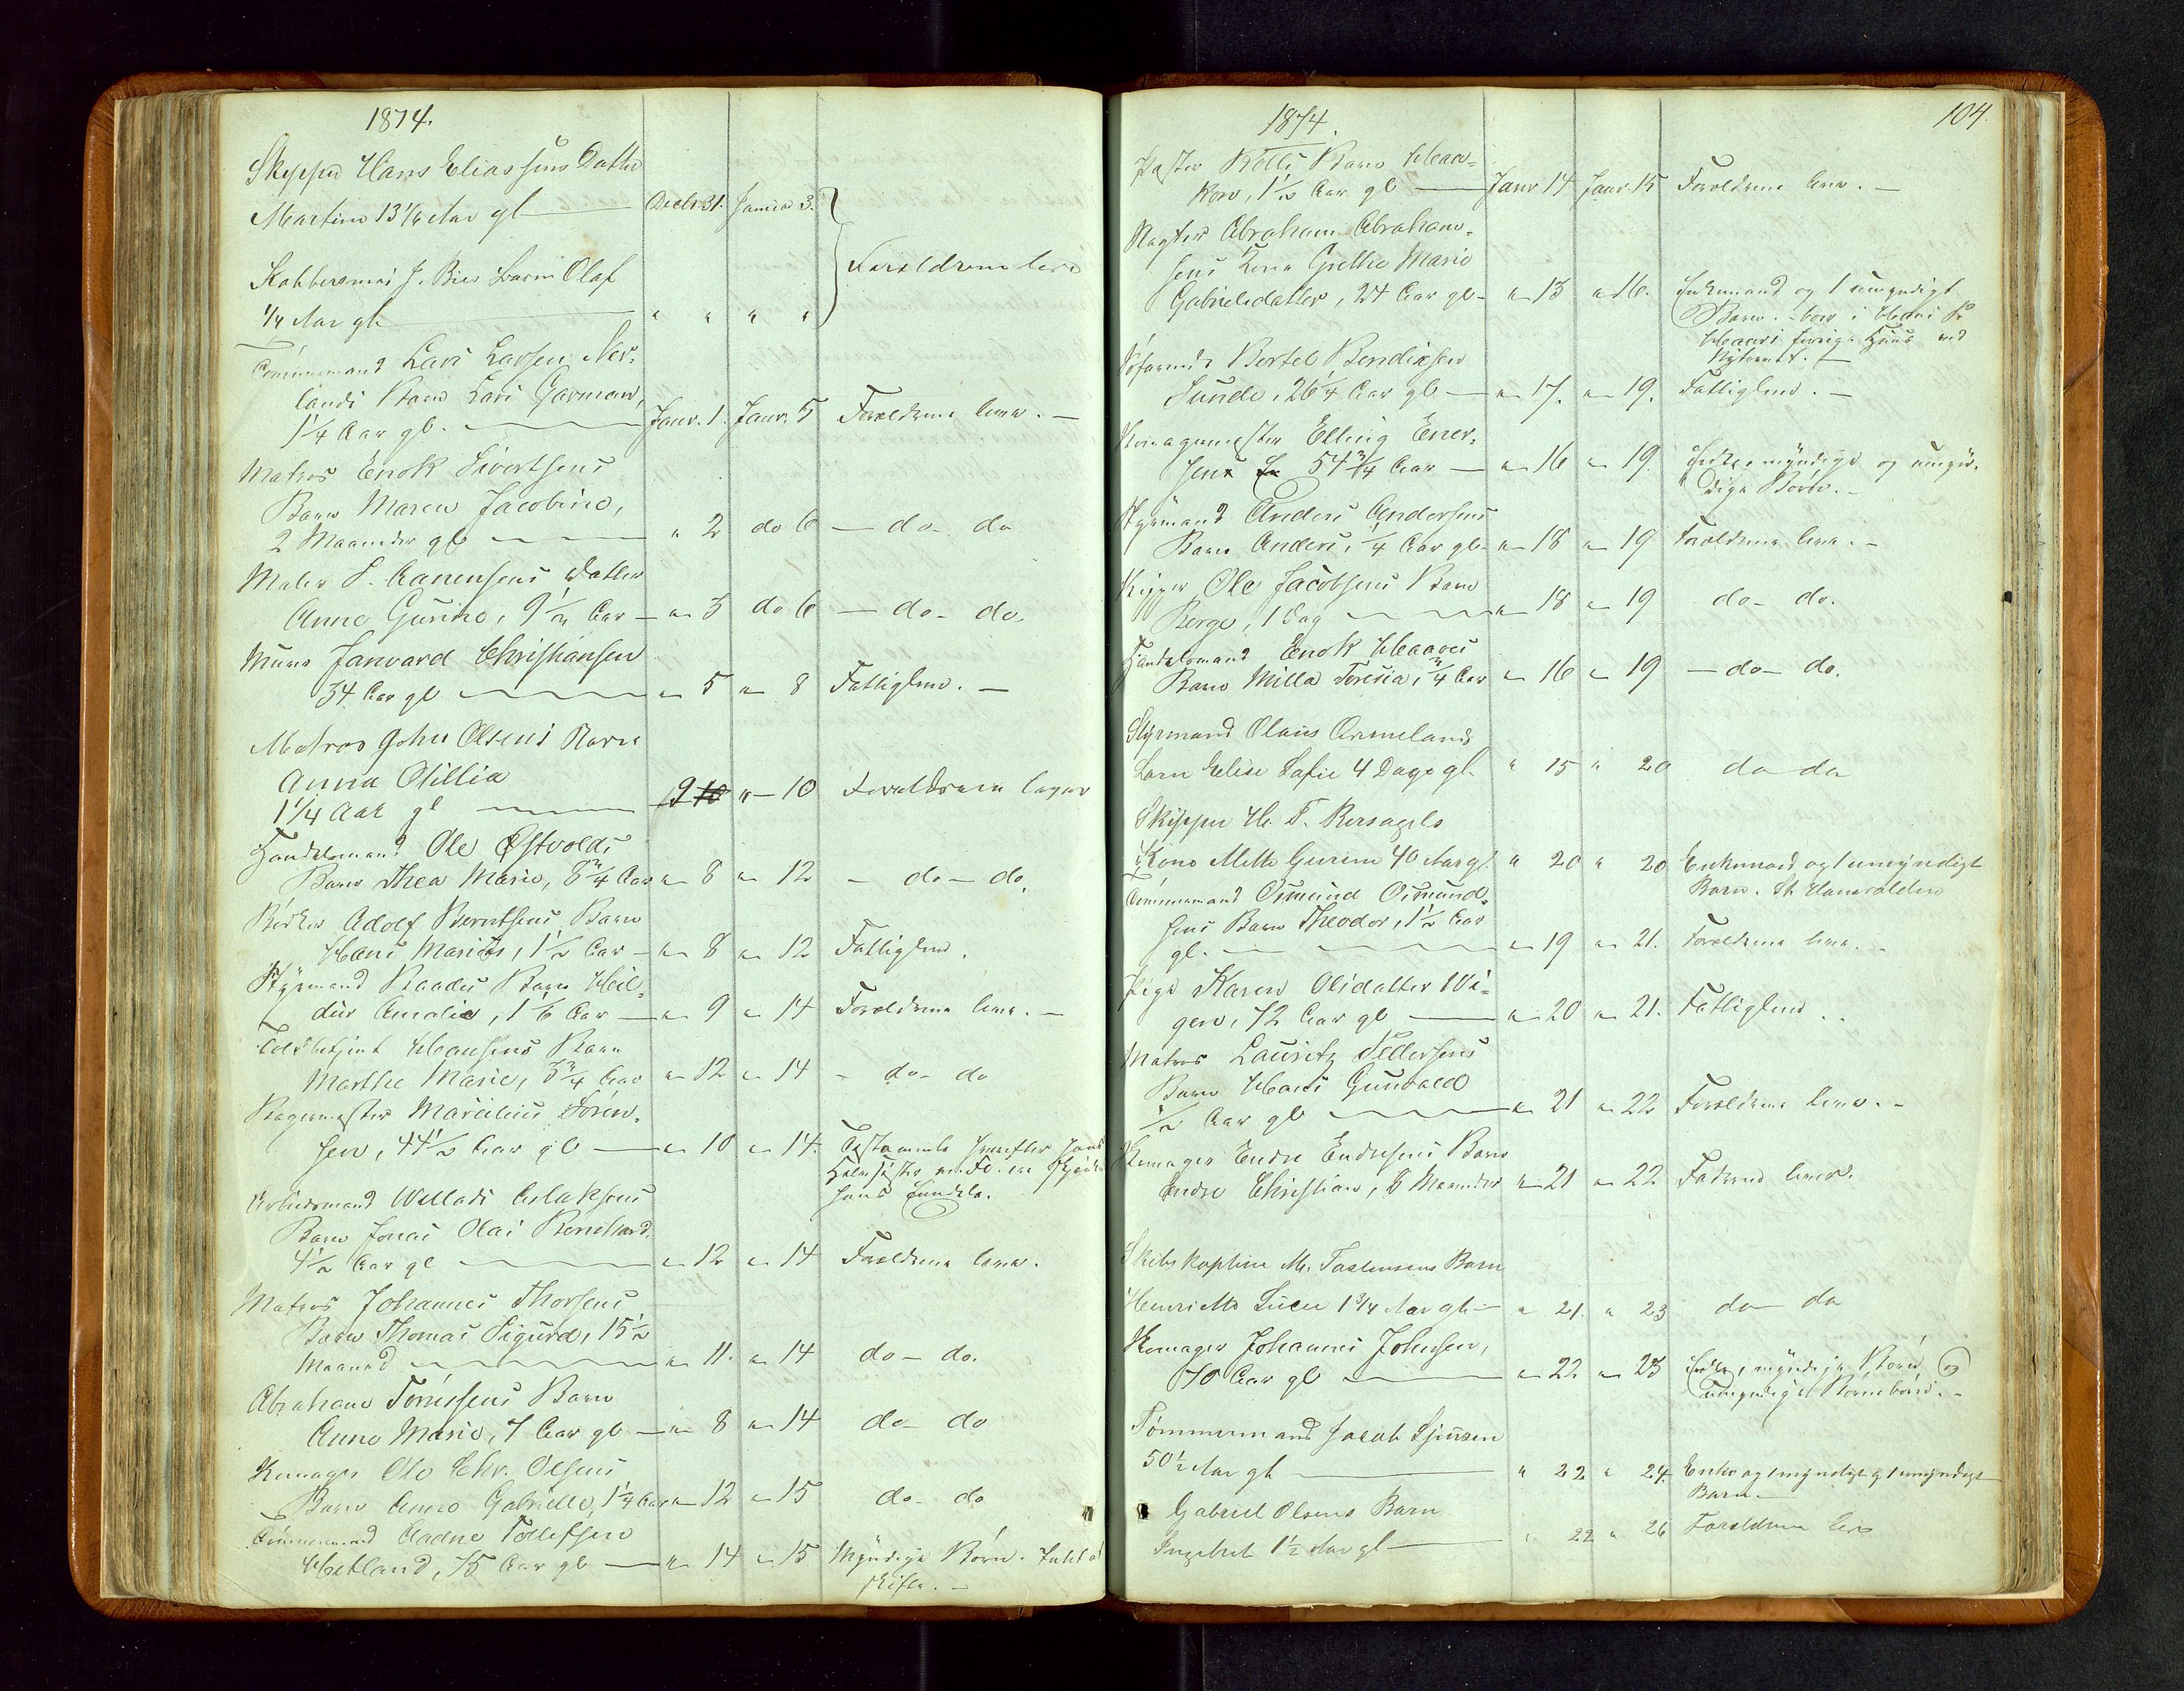 1874.
Skipper Hans Eliassens Datter
Martine 13 1/4 Aar gl Decbr 31. Januar 3.
Forældrene leve
Kobbersmed J. Bies Barn Olaf
1/4 Aar gl " " " "
Tømmermand Lars Larsen Nær-
lands Barn Lars Garman,
1 1/4 Aar gl. Janr. 1. Janr. 5 Forældrene leve.
Matros Enok Sivertsens
Barn Maren Jacobine,
2 Maaneder gl " 2 do 6 - do - do
Maler S. Aanensens Datter
Anne Gurine, 9 1/2 Aar - " 3 do 6 - do - do.
Murer Janvard Christiansen
34 Aar gl " 5 " 8 Fattiglem. -
Matros John Olsens Barn
Anna Otillia
1 1/4 Aar gl 9 10 " - 10 Forældrene lever
Handelsmand Ole Østvolds
Barn Thea Marie, 8 3/4 Aar " 8 " 12 - do - do.
Bødker Adolf Berntsens Barn
Hans Marius, 1 1/2 Aar - " 8 " 12 Fattiglem.
Styrmand Raades Barn Hil-
dur Amalie, 1 1/6 Aar " 9 " 14 Forældrene leve. -
Toldbetjent Hansens Barn
Marthe Marie, 3 3/4 Aar " 12 " 14 - do - do
Bagermester Marcelius Søren-
sen, 44 1/2 Aar gl " 10 " 14. Testamente hvorefter hans
Halvsøster
hans
Arbeidsmand Willads Aslaksens
Barn Jonas Olai Bernhard,
4 1/2 Aar gl " 12 " 14 Forældrene leve.
Matros Johannes Thorsens
Barn Thomas Sigurd, 15 1/2
Maaned " 11. " 14 do - do.
Abraham Tønnessens Barn
Anne Marie, 7 Aar gl " 8 " 14 do - do
Komager Ole Chr. Olsens
Barn Anne Gabrielle, 1 1/4 Aar " 12 " 15 do - do
Tømmermand Aadne Tollefsen
Hetland, 75 Aar gl " 14 " 15 Myndige Børn. Intet at
skifte. -
1874. 104
Barn Haa-
kon, 1 1/2 Aar gl Janr 14 Janr. 15 Forældrene leve. -
Abraham Abraham-
sens Kone Grethe Marie
Gabrielsdatter, 24 Aar gl - " 13 " 16. Enkemand og 1 umyndigt
Barn. - boer i
Huus ved
Nytorvet. -
Bertel Bendixsen
Sunde, 26 1/4 Aar gl " 17. " 19. Fattiglem. -
Komagermester Elling Ener-
sens 54 3/4 Aar " 16 " 19. Enke, myndige og umyn-
dige Børn. -
Styrmand Anders Andersens
Barn Anders, 1/4 Aar gl " 18 " 19 Forældrene leve. -
Ole Jacobsens Barn
Berge, 1 Dag " 18 " 19 do - do.
Handelsmand Enok Haaves
Barn Milla Teresia, 3/4 Aar " 16 " 19 - do - do.
Styrmand Olaus Ormelands
Barn Elise Sofie 4 Dage gl. " 15 " 20 do do
Skipper H. T. Bersagels
Kone Mette Gurine 40 Aar gl " 20 " 20 Enkemand og 1 umyndigt
Barn.
Tømmermand Osmund Osmund-
sens Barn Theodor, 1 1/2 Aar
gl. - " 19 " 21. Forældrene leve. -
Pige Karen Olsdatter Wi-
gen, 72 Aar gl " 20 " 21. Fattiglem.
Matros Lauritz Pedersens
Barn Hans Gunvald
1/2 Aar gl " 21 " 22 Forældrene leve. -
Komager Endre Endresens Barn
Endre Christian, 8 Maaneder " 21 " 22 Faderen lever.
Skibskaptein M. Tastensens Barn
Henriette Sucie 1 3/4 Aar gl - " 21. " 23 do do
Komager Johannes Johnsen,
70 Aar gl " 22 " 23 Enke, myndige Børn og
umyndige Børnebørn. -
Tømmermand Jacob Simsen
50 1/2 Aar gl " 22 " 24. Enke og 1 myndigt og 1 umyndigt
Barn. -
Gabriel Olsens Barn
Ingebret 1 1/2 Aar gl " 22 " 26 Forældrene leve